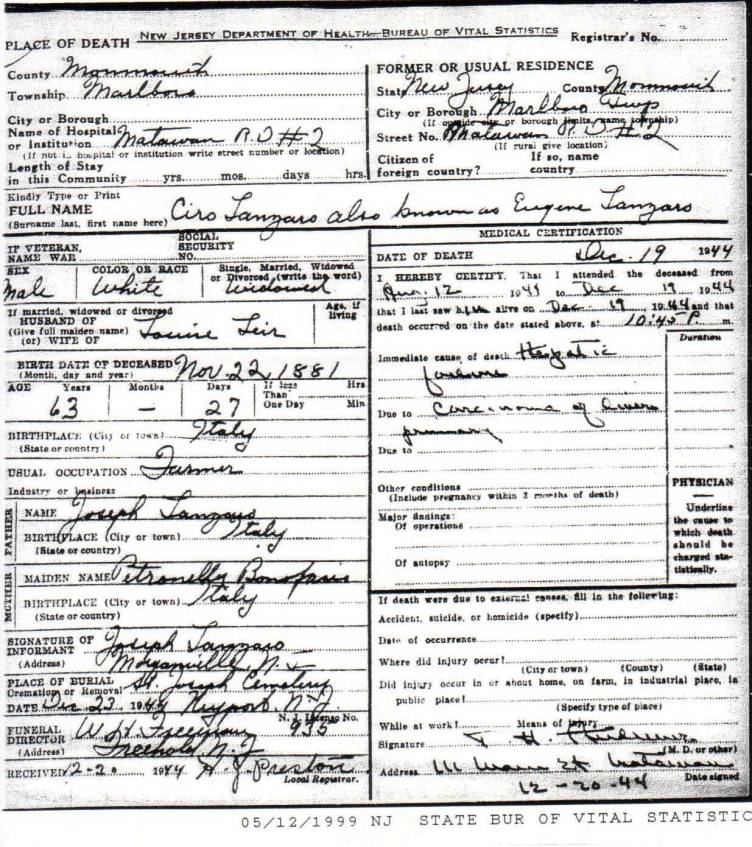 NEW JERSEY DEPARTMENT OF HEALTH—BUREAU OF VITAL STATISTICS
Registrar's No.
PLACE OF DEATH
County Monmouth
Township Marlboro
City or Borough
Name of Hospital
or Institution Matawan R.D #2
(If not in hospital or institution write street number or location)
Length of Stay
in this Community yrs. mos. days hrs.
FORMER OR USUAL RESIDENCE
State New Jersey County Monmouth
City or Borough Marlboro Twp
(If outside city or borough limits, name township)
Street No. Matawan R.D #2
(If rural give location)
Citizen of If so, name
foreign country? country
Kindly Type or Print
FULL NAME Ciro Lanzaro also known as Eugene Lanzaro
(Surname last, first name here)
IF VETERAN, SOCIAL
NAME WAR SECURITY
NO.
SEX COLOR OR RACE Single, Married, Widowed
or Divorced (write the word)
Male White Widowed
If married, widowed or divorced Age, if
HUSBAND OF living
(Give full maiden name) Louise
(or) WIFE OF
BIRTH DATE OF DECEASED Nov. 22, 1881
(Month, day and year)
AGE Years Months Days If less Hrs
Than
One Day Min
63 — 27
BIRTHPLACE (City or town) Italy
(State or country)
USUAL OCCUPATION Farmer
Industry or business
FATHER
NAME Joseph Lanzaro
BIRTHPLACE (City or town) Italy
(State or country)
MOTHER
MAIDEN NAME Petronella
BIRTHPLACE (City or town) Italy
(State or country)
SIGNATURE OF
INFORMANT Joseph Lanzaro
(Address) Morganville, N.J.
PLACE OF BURIAL St. Joseph Cemetery
Cremation or Removal
DATE Dec 23 1944 Keyport, N.J.
N. J. License No.
FUNERAL
DIRECTOR W. H. Freeman 935
(Address) Freehold, N.J.
RECEIVED 12-20 1944 H. J. Preston
Local Registrar.
MEDICAL CERTIFICATION
DATE OF DEATH Dec. 19 1944
I HEREBY CERTIFY, That I attended the deceased from
12 19 to Dec 19 1944
that I last saw him alive on Dec 19 1944 and that
death occurred on the date stated above, at 10:45 P. m
Duration
Immediate cause of death Hepatic
failure
Due to Carcinoma of liver
primary
Due to
Other conditions
(Include pregnancy within 3 months of death)
Major findings:
Of operations
Of autopsy
PHYSICIAN
Underline
the cause to
which death
should be
charged sta-
tistically.
If death were due to external causes, fill in the following:
Accident, suicide, or homicide (specify)
Date of occurrence
Where did injury occur?
(City or town) (County) (State)
Did injury occur in or about home, on farm, in industrial place, in
public place?
(Specify type of place)
While at work? Means of injury
Signature
(M. D. or other)
Address 111 Main St Matawan
Date signed
12-20-44
05/12/1999 NJ STATE BUR OF VITAL STATISTIC